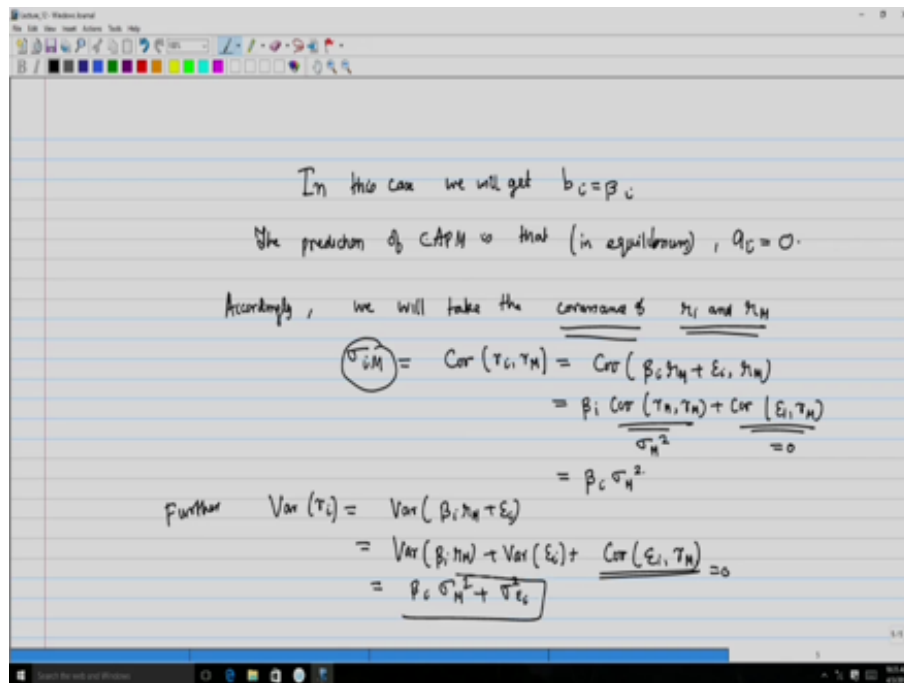 Lecture_12 - Windows Journal
File Edit View Insert Actions Tools Help
In this case we will get b_i = β_i
The prediction of CAPM is that (in equilibrium), a_i = 0.
Accordingly, we will take the covariance of r_i and r_M
σ_iM = Cov (r_i, r_M) = Cov ( β_i r_M + ε_i, r_M)
= β_i Cov (r_M, r_M) + Cov (ε_i, r_M)
σ_M² =0
= β_i σ_M².
Further Var (r_i) = Var( β_i r_M + ε_i)
= Var (β_i r_M) + Var (ε_i) + Cov (ε_i, r_M) =0
= β_i σ_M² + σ²_ε_i
5
Search the web and Windows